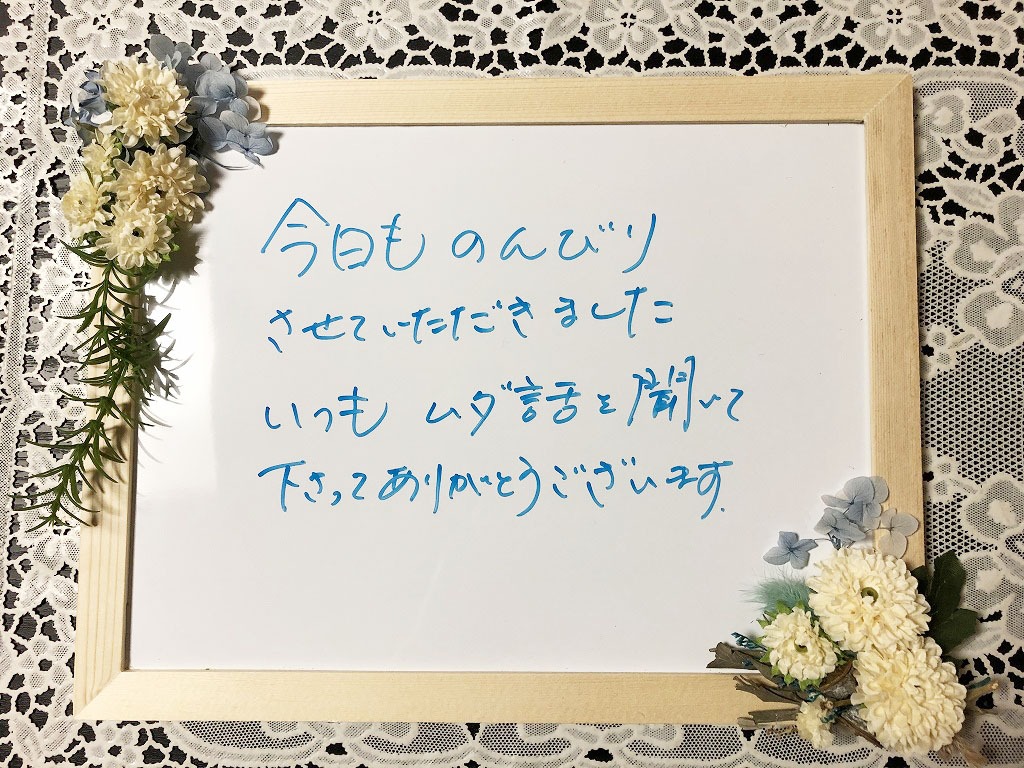 今日ものんびり
させていただきました
いつもムダ話を聞いて
下さってありがとうございます.